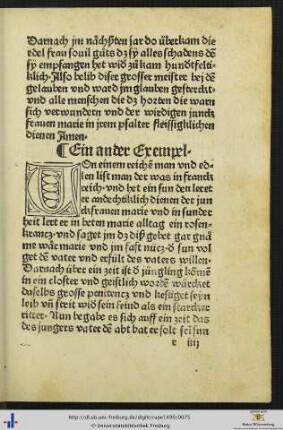 Darnach jm nächsten jar do überkam die
edel frau souil güts dz sy alles schadens dē
sy empfangen het wid zů kam hundtfelti-
klich. Also belib diser grosser meister bei dē
gelauben vnd ward jm glauben gesterckt
vnd alle menschen die dz horten die warn
sich verwundern vnd der wirdigen junck
frauen marie in jrem psalter fleissigklichen
dienen Amen.
¶ Ein ander Exempel.
VOn einem reichē man vnd ed-
len list man der was in franck
reich. vnd het ein sun den leret
er andechtiklich dienen der jun
ckfrauen marie vnd in sunder
heit lert er in beten marie alltag ein rosen-
krantz. vnd saget jm dz diß gebet gar gnā
me wär marie vnd jm fast nücz. d sun vol
get dē vater vnd erfült des vaters willen.
Darnach über ein zeit ist d jüngling kōmē
in ein closter vnd geistlich wordē würcket
daselbs grosse penitencz vnd kestiget seyn
leib vñ streit wid sein feind als ein starcker
ritter. Nun begabe es sich auff ein zeit das
des jungers vater dē abt bat er solt sei sun
e iiij
http://dl.ub.uni-freiburg.de/diglit/rupe1498/0075
© Universitätsbibliothek Freiburg
Baden-Württemberg